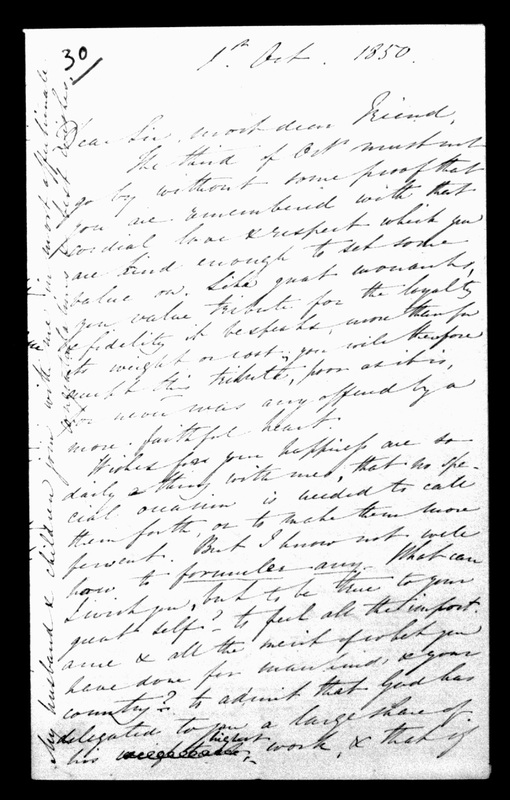 30
1st Oct. 1850.
Dear Sir, most dear Friend,
The third of Octr. must not
go by without some proof that
you are remembered with that
cordial love & respect which you
are kind enough to set some
value on. Like great monarchs,
you value tribute for the loyalty
& fidelity it bespeaks more than for
its weight or cost; you will therefore
accept this "tribute", poor as it is,
never was any offered by a
more faithful heart.
Wishes for your happiness are so
daily a thing with me, that no spe-
cial occasion is needed to call
them forth, or to make them more
fervent. But I know not well
how to formuler any. What can
I wish you, but to be true to your
great self? to feel all the import-
ance & all the merit of what you
have done for mankind, & your
country? to admit that God has
delegated to you a large share of
his highest work, & that if
My husband & children join with me in most affectionate
& best wishes.